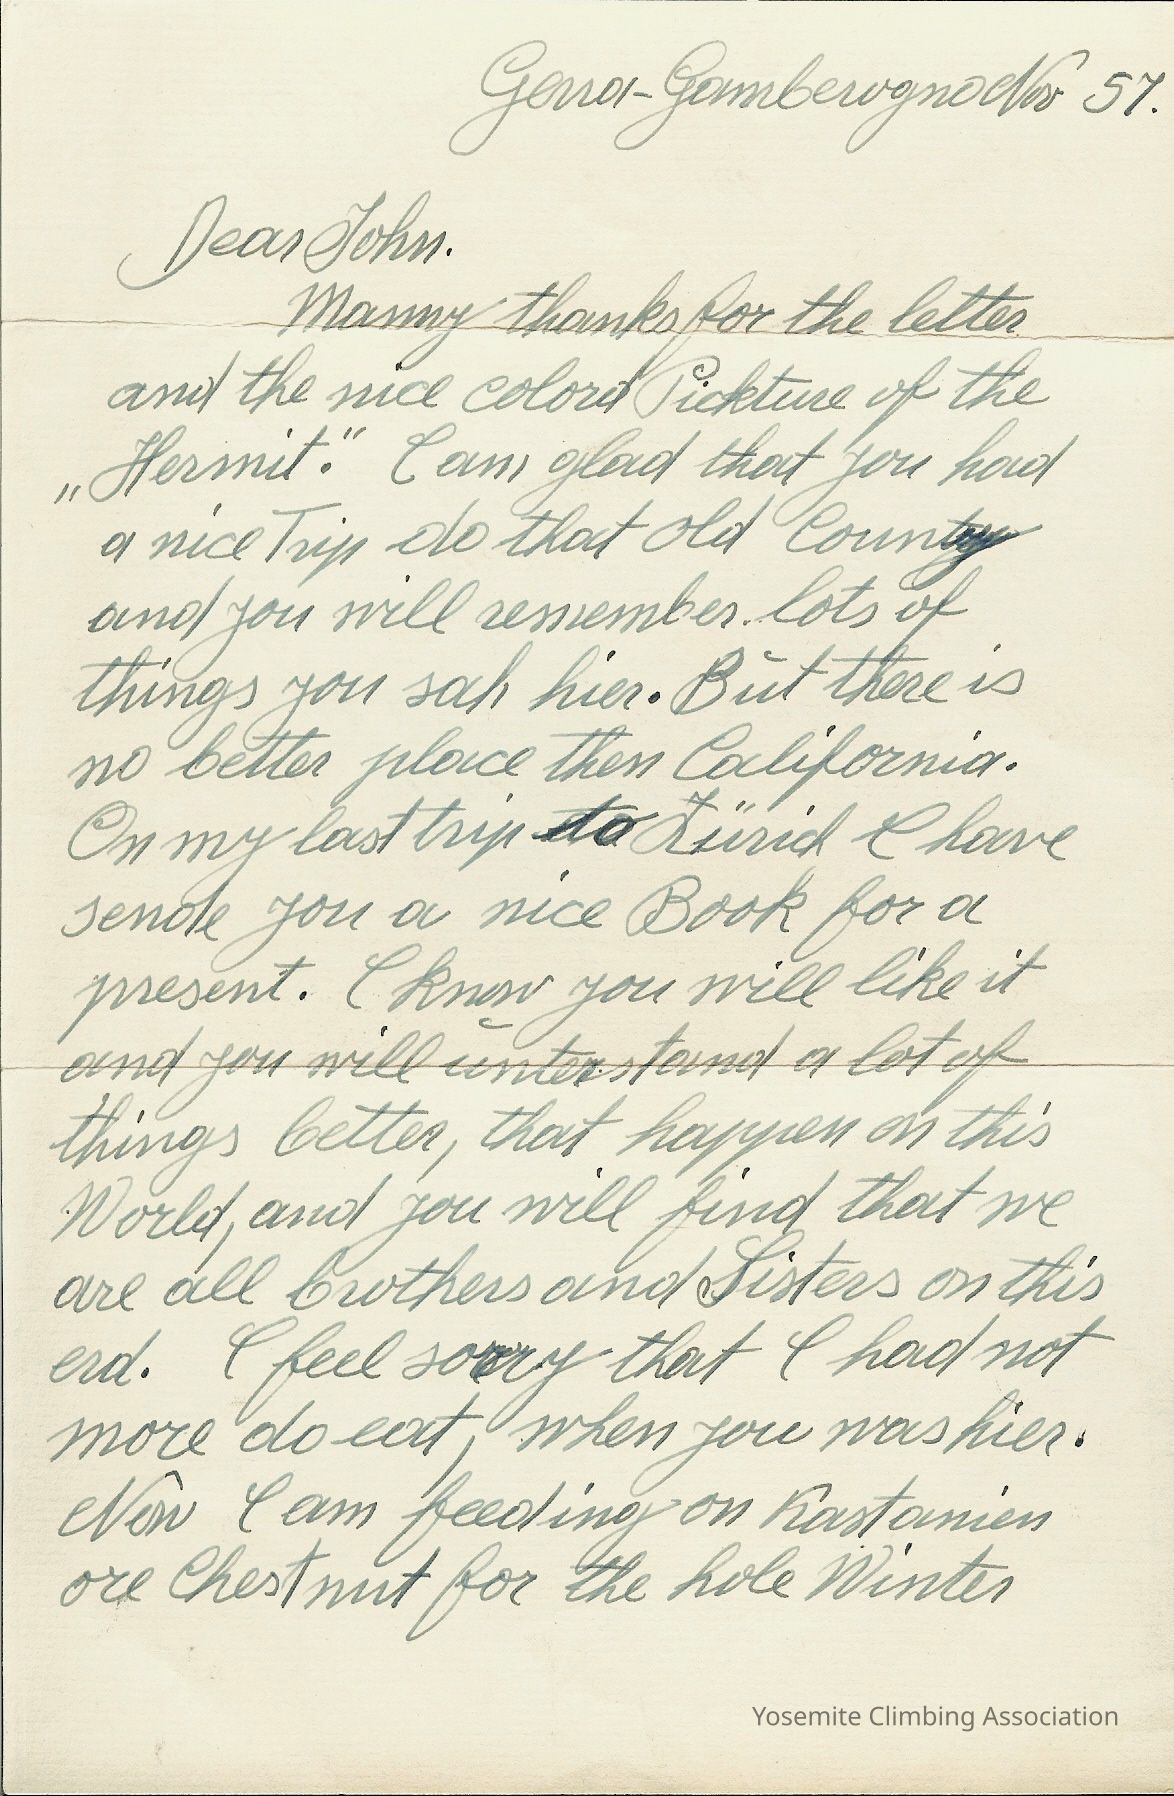 Gerra-Gambarogno Nov 57.
Dear John.
Manny thanks for the letter
and the nice colord Pickture of the
„Hermit". I am glad that you had
a nice Trip do that old County
and you will remember. lots of
things you sah hier. But there is
no better place then California.
On my last trip to Zürich I have
sende you a nice Book for a
present. I know you will like it
and you will unterstand a lot of
things better, that happen on this
World, and you will find that we
are all brothers and Sisters on this
erd. I feel sorry that I had not
more do eat, when you was hier.
Now I am feeding on Kastanien
ore Chestnut for the hole Winter
Yosemite Climbing Association